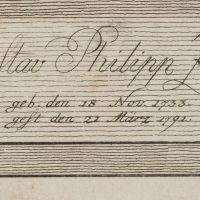 Philipp
geb. den 18 Nov. 1733.
gest den 21 März 1791.